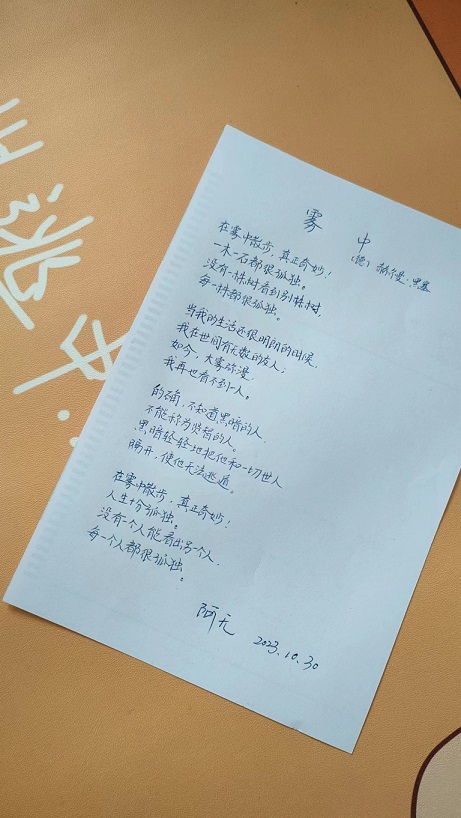 雾中
(德)赫尔曼·黑塞
在雾中散步，真正奇妙！
一木一石都很孤独。
没有一株树看到别株树，
每一株都很孤独。
当我的生活还很明朗的时候，
我在世间有无数的友人；
如今，大雾弥漫，
我再也看不到一人。
的确，不知道黑暗的人，
不能称为贤智的人。
黑暗轻轻地把他和一切世人
隔开，使他无法逃遁。
在雾中散步，真正奇妙！
人生十分孤独。
没有一个人能看出另个人，
每一个人都很孤独。
阿无
2023.10.30